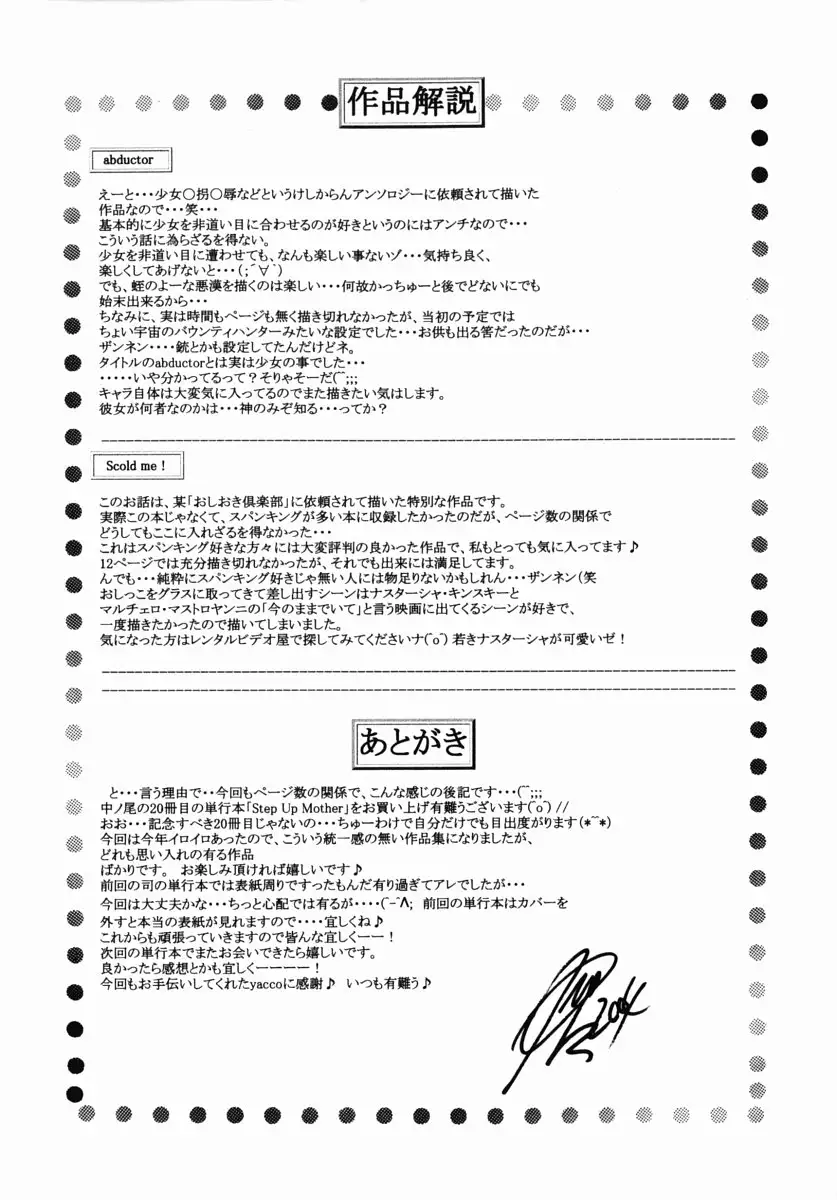 作品解説
abductor
えーと・・・少女○拐○辱などというけしからんアンソロジーに依頼されて描いた
作品なので・・・笑・・・
基本的に少女を非道い目に合わせるのが好きというのにはアンチなので・・・
こういう話に為らざるを得ない。
少女を非道い目に遭わせても、なんも楽しい事ないゾ・・・気持ち良く、
楽しくしてあげないと・・・(;´∀`)
でも、蛭のよーな悪漢を描くのは楽しい・・・何故かっちゅーと後でどないにでも
始末出来るから・・・
ちなみに、実は時間もページも無く描き切れなかったが、当初の予定では
ちょい宇宙のバウンティハンターみたいな設定でした・・・お供も出る筈だったのだが・・・
ザンネン・・・・銃とかも設定してたんだけどネ。
タイトルのabductorとは実は少女の事でした・・・
・・・・・いや分かってるって？そりゃそーだ(^^;;;
キャラ自体は大変気に入ってるのでまた描きたい気はします。
彼女が何者なのかは・・・神のみぞ知る・・・ってか？
Scold me !
このお話は、某「おしおき倶楽部」に依頼されて描いた特別な作品です。
実際この本じゃなくて、スパンキングが多い本に収録したかったのだが、ページ数の関係で
どうしてもここに入れざるを得なかった・・・
これはスパンキング好きな方々には大変評判の良かった作品で、私もとっても気に入ってます♪
12ページでは充分描き切れなかったが、それでも出来には満足してます。
んでも・・・純粋にスパンキング好きじゃ無い人には物足りないかもしれん・・・ザンネン(笑
おしっこをグラスに取ってきて差し出すシーンはナスターシャ・キンスキーと
マルチェロ・マストロヤンニの「今のままでいて」と言う映画に出てくるシーンが好きで、
一度描きたかったので描いてしまいました。
気になった方はレンタルビデオ屋で探してみてくださいナ(^o^) 若きナスターシャが可愛いゼ！
あとがき
と・・・言う理由で・・今回もページ数の関係で、こんな感じの後記です・・・(^^;;;
中ノ尾の20冊目の単行本「Step Up Mother」をお買い上げ有難うございます(^o^) //
おお・・・記念すべき20冊目じゃないの・・・ちゅーわけで自分だけでも目出度がります(*^^*)
今回は今年イロイロあったので、こういう統一感の無い作品集になりましたが、
どれも思い入れの有る作品
ばかりです。 お楽しみ頂ければ嬉しいです♪
前回の司の単行本では表紙周りですったもんだ有り過ぎてアレでしたが・・・
今回は大丈夫かな・・・ちっと心配では有るが・・・・(^-^Λ; 前回の単行本はカバーを
外すと本当の表紙が見れますので・・・・宜しくね♪
これからも頑張っていきますので皆んな宜しくーー！
次回の単行本でまたお会いできたら嬉しいです。
良かったら感想とかも宜しくーーーー！
今回もお手伝いしてくれたyaccoに感謝♪ いつも有難う♪
2004